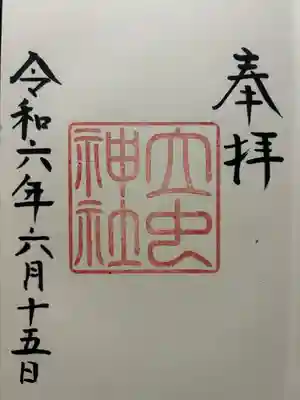 奉拝
立虫
神社
令和六年六月十五日